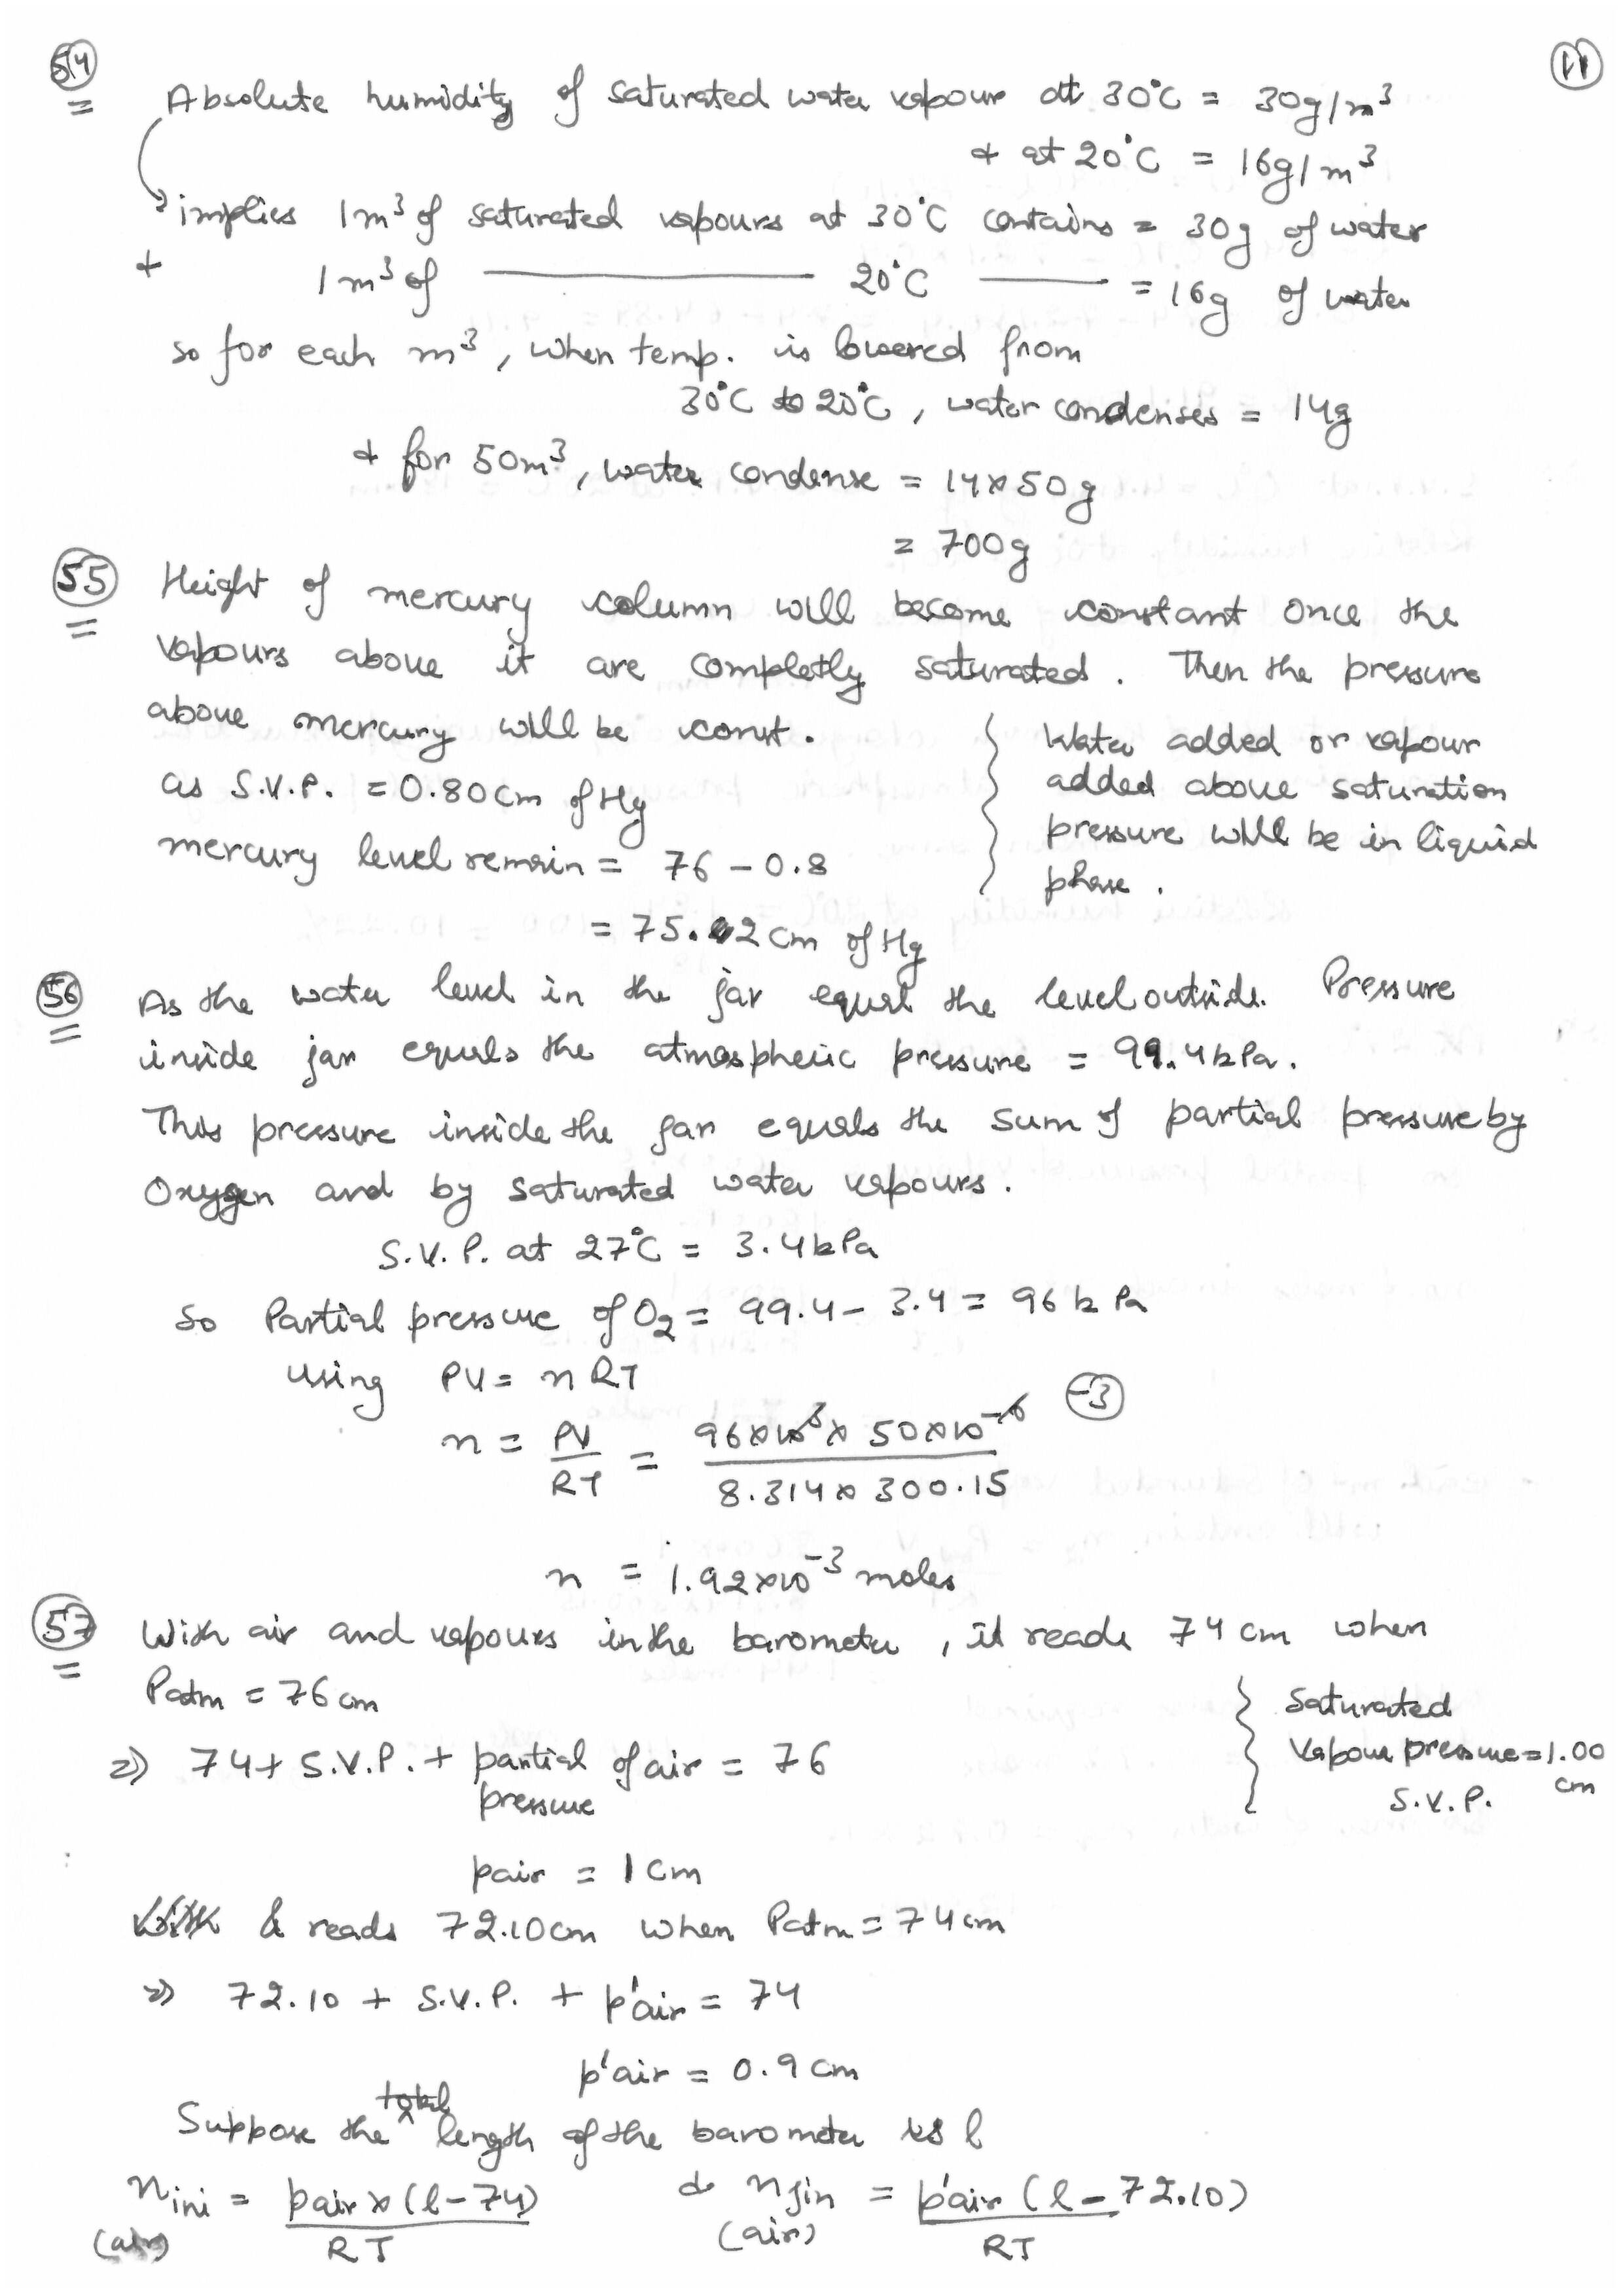 54
11
Absolute humidity of saturated water vapour at 30°C = 30g/m³
& at 20°C = 16g/m³
implies 1m³ of saturated vapours at 30°C contains = 30g of water
& 1m³ of ——— 20°C ——— = 16g of water
so for each m³, when temp. is lowered from
30°C to 20°C, water condenses = 14g
& for 50m³, water condense = 14×50g
= 700g
55 Height of mercury column will become constant once the
vapours above it are completly saturated. Then the pressure
above mercury will be const.
as S.V.P. = 0.80cm of Hg
mercury level remain = 76 - 0.8
= 75.2cm of Hg
Water added or vapour
added above saturation
pressure will be in liquid
phase.
56 As the water level in the jar equal the level outside. Pressure
inside jar equals the atmospheric pressure = 99.4kPa.
This pressure inside the jar equals the sum of partial pressure by
Oxygen and by saturated water vapours.
S.V.P. at 27°C = 3.4kPa
So Partial pressure of O₂ = 99.4 - 3.4 = 96kPa
using PV = nRT
n = PV/RT = 96×10³×50×10⁻⁶ / 8.314×300.15 -3
n = 1.92×10⁻³ moles
57 With air and vapours in the barometer, it reads 74cm when
Patm = 76cm
⇒ 74 + S.V.P. + partial pressure of air = 76
Saturated
Vapour pressure = 1.00
cm
S.V.P.
pair = 1cm
& reads 72.10cm when Patm = 74cm
⇒ 72.10 + S.V.P. + p'air = 74
p'air = 0.9cm
Suppose the total length of the barometer is l
n ini (air) = pair×(l-74)/RT & n fin (air) = p'air(l-72.10)/RT